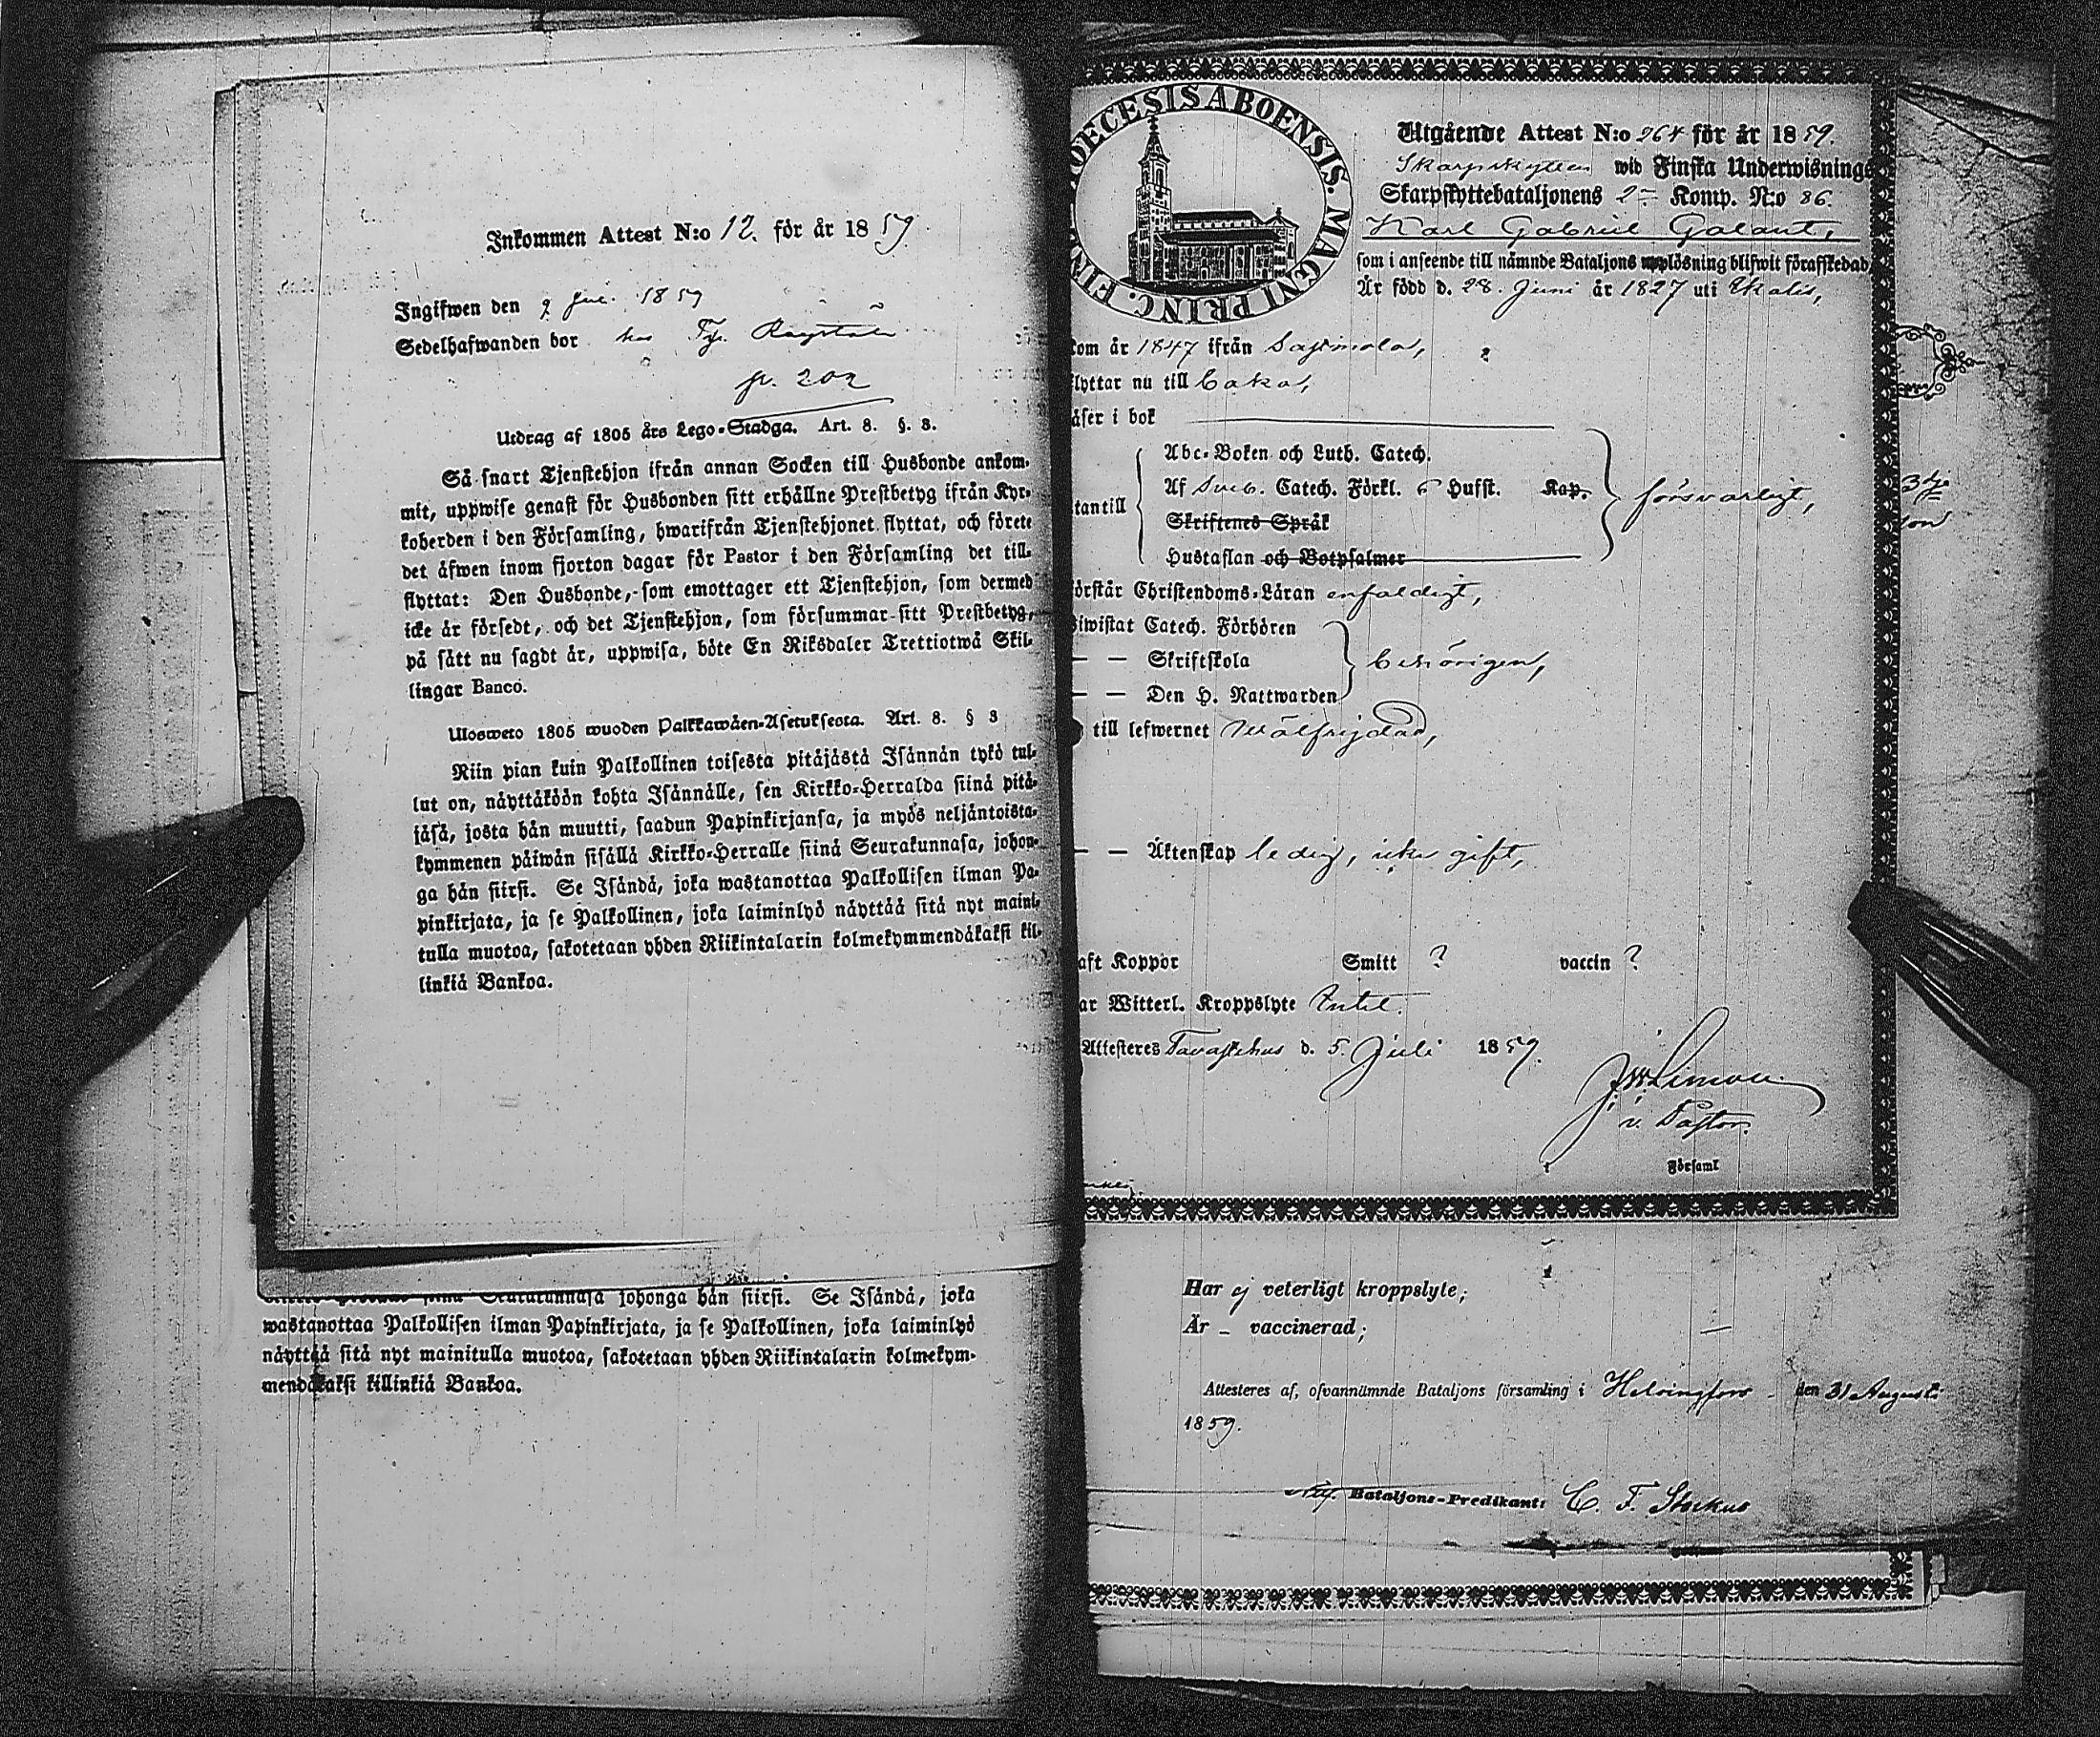 Inkommen Attest N:o 12. för år 1859.
Ingifwen den 9 Jul. 1859
Sedelhafwanden bor hos
p. 202
Utdrag af 1805 års Lego-Stadga. Art. 8. §. 8.
Så snart Tjenstehjon ifrån annan Socken till Husbonde ankom-
mit, uppwise genast för Husbonden sitt erhållne Prestbetyg ifrån Kyr-
koherden i den Församling, hwarifrån Tjenstehjonet flyttat, och förete
det åfwen inom fjorton dagar för Pastor i den Församling det till-
flyttat: Den Husbonde, som emottager ett Tjenstehjon, som dermed
icke är försedt, och det Tjenstehjon, som försummar sitt Prestbetyg,
på sätt nu sagdt är, uppwisa, böte En Riksdaler Trettiotwå Skil-
lingar Banco.
Ulosweto 1805 wuoden Palkkawäen-Asetuksesta. Art. 8. § 8
Niin pian kuin Palkollinen toisesta pitäjästä Isännän tykö tul-
lut on, näyttäköön kohta Isännälle, sen Kirkko-Herralda siinä pitä-
jäsä, josta hän muutti, saadun Papinkirjansa, ja myös neljäntoista-
kymmenen päiwän sisällä Kirkko-Herralle siinä Seurakunnasa, johon-
ga hän siirsi. Se Isändä, joka wastanottaa Palkollisen ilman Pa-
pinkirjata, ja se Palkollinen, joka laiminlyö näyttää sitä nyt maini-
tulla muotoa, sakotetaan yhden Riikintalarin kolmekymmendäkaksi kil-
linkiä Bankoa.
Seurakunnasa johonga hän siirsi. Se Isändä, joka
wastanottaa Palkollisen ilman Papinkirjata, ja se Palkollinen, joka laiminlyö
näyttää sitä nyt mainitulla muotoa, sakotetaan yhden Riikintalarin kolmekym-
mendäkaksi killinkiä Bankoa.
DIOECESIS ABOENSIS. MAGNI PRINC. FIN
Utgående Attest N:o 264 för år 1859.
Skarpskytten wid Finska Underwisnings
Skarpskyttebataljonens 2 Komp. N:o 86.
Karl Gabriel Galant,
som i anseende till nämnde Bataljons upplösning blifwit förafskedad,
Är född d. 28. Juni år 1827 uti
kom år 1847 ifrån Sagtmola,
flyttar nu till
läser i bok
Abc-Boken och Luth. Catech.
Af Sveb. Catech. Förkl. o Husst. Kap.
försvarligt,
utantill
Skriftenes Språk
Hustaflan och Botpsalmer
förstår Christendoms-Läran enfaldigt,
biwistat Catech. Förhören
— — Skriftskola
behörigen,
— — Den H. Nattwarden
till lefwernet wälfrejdad,
— — Äktenskap ledig, icke gift,
haft Koppor Smitt ? vaccin ?
har Witterl. Kroppslyte Intet.
Attesteres Tavastehus d. 5. Juli 1859.
v. Pastor.
Församl
3dje
Har ej veterligt kroppslyte;
Är – vaccinerad;
Attesteres af, ofvannämnde Bataljons församling i Helsingfors den 31 Augusti
1859.
Bataljons-Predikant: C. F. Storkus